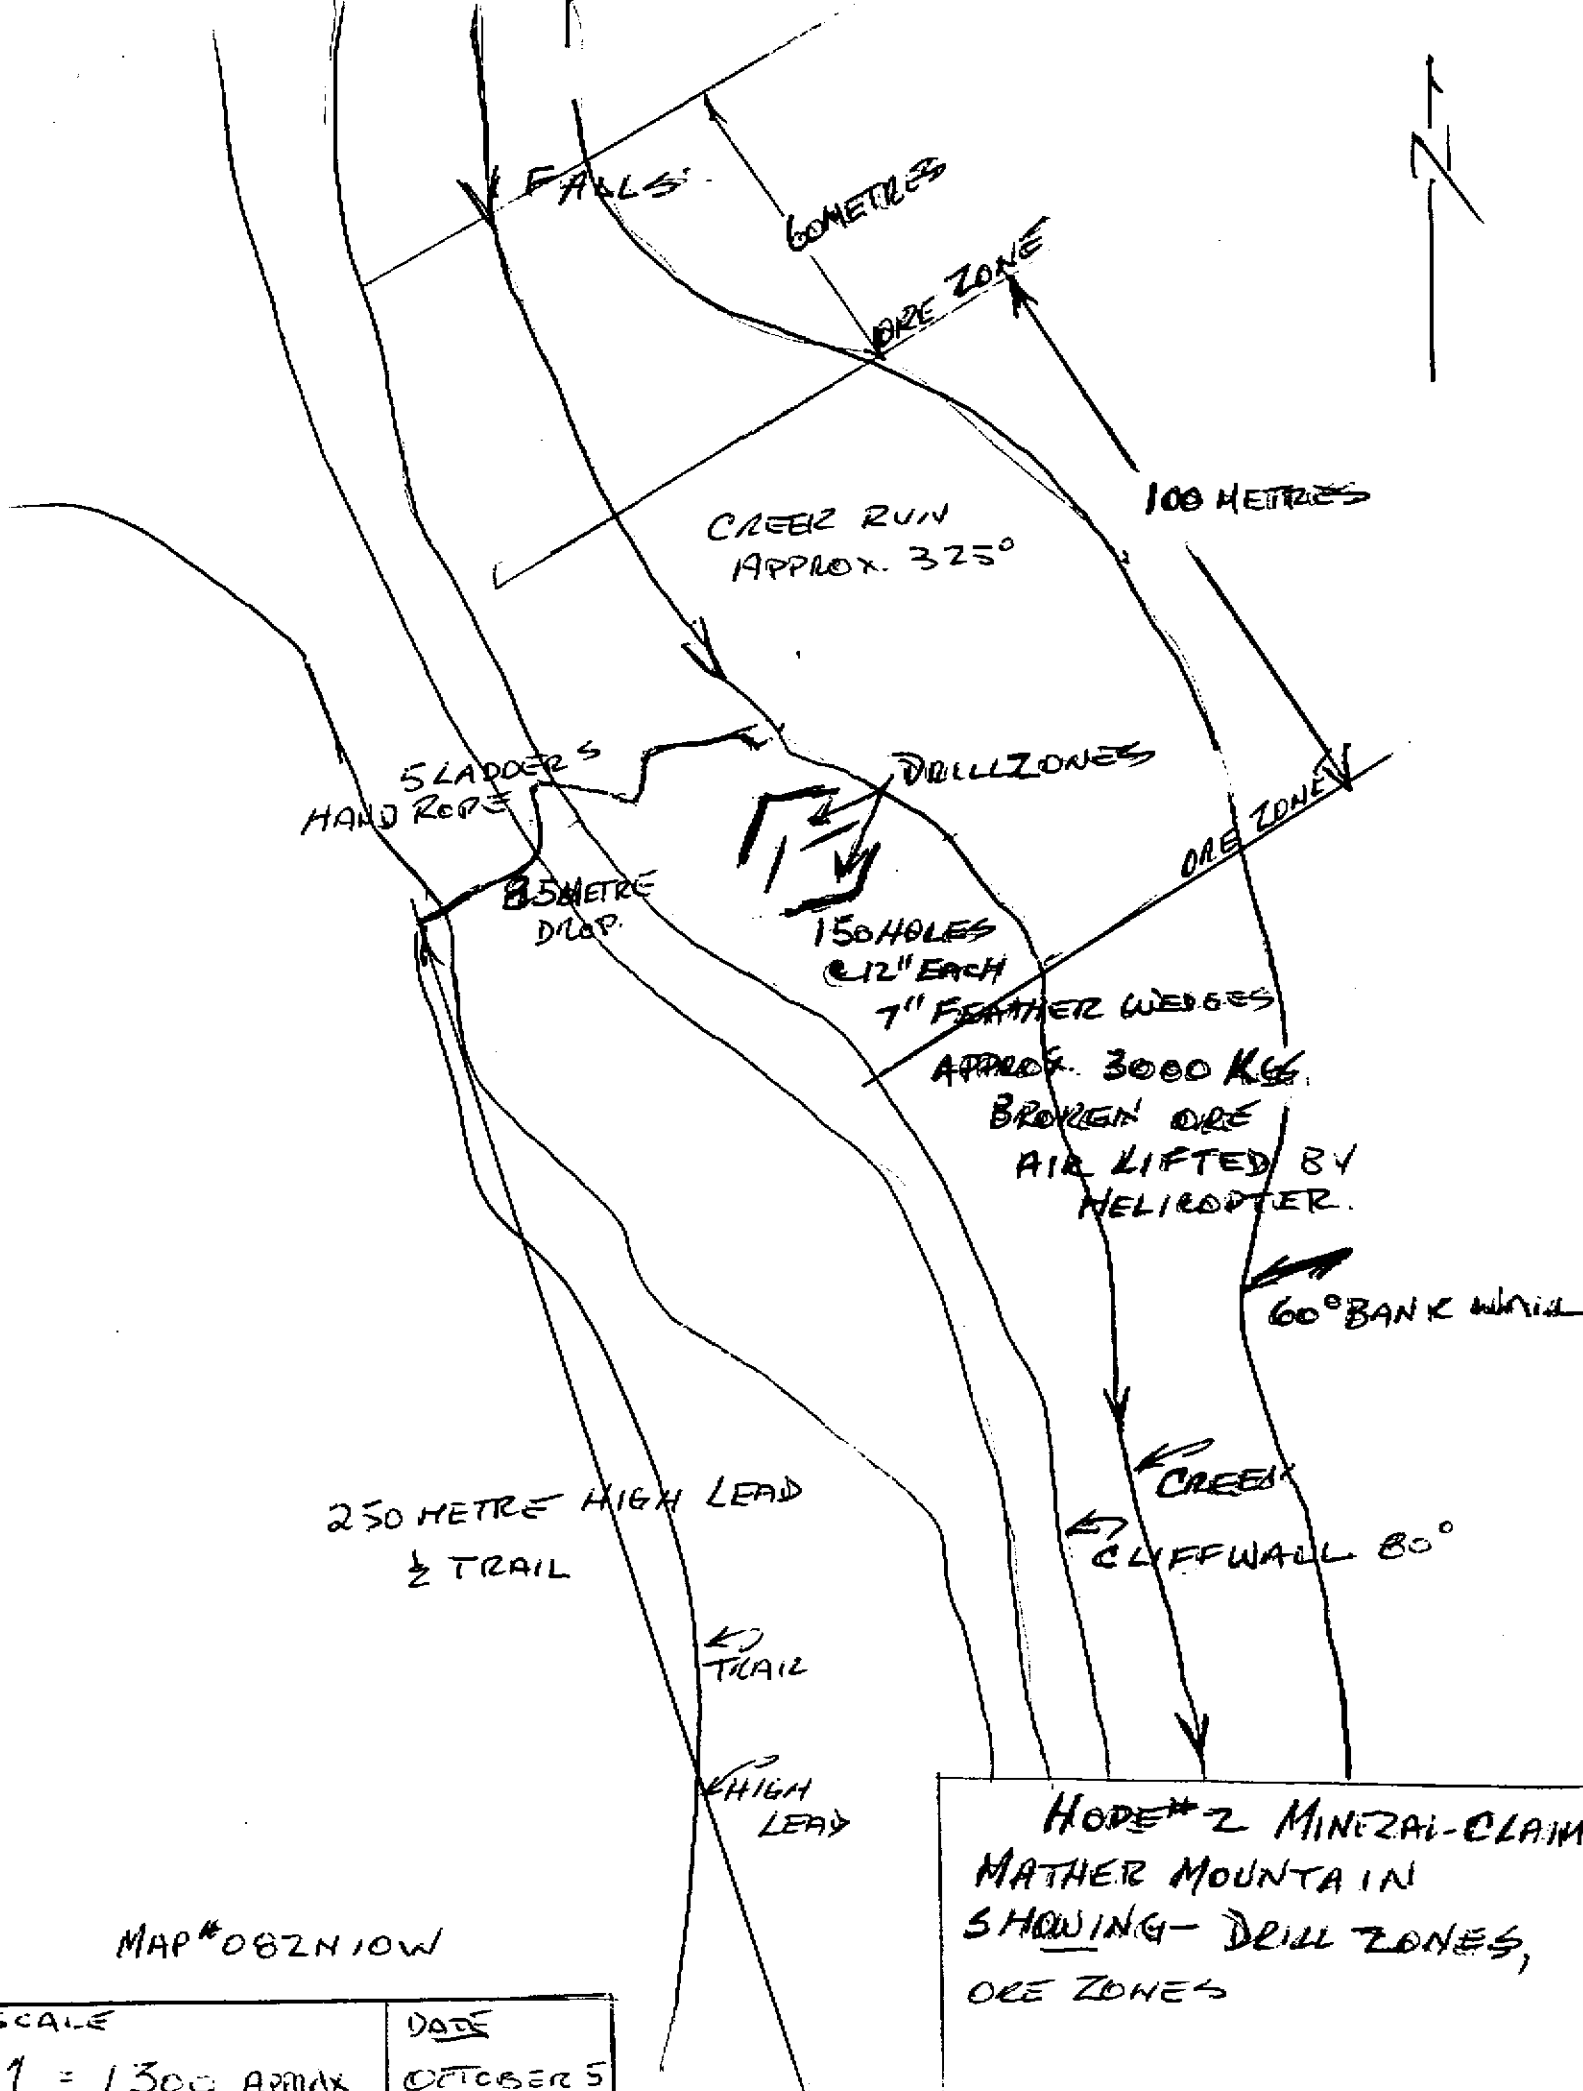 N
FALLS
60 METRES
ORE ZONE
100 METRES
CREEK RUN
APPROX. 325°
5 LADDERS
HAND ROPE
DRILL ZONES
ORE ZONE
DROP.
150 HOLES
@ 12" EACH
7" FEATHER WEDGES
APPROX. 3000 KGS.
BROKEN ORE
AIR LIFTED BY
HELICOPTER.
60° BANK WALL
CREEK
CLIFFWALL 80°
250 METRE HIGH LEAD
& TRAIL
TRAIL
HIGH
LEAD
HOPE #2 MINERAL-CLAIM
MATHER MOUNTAIN
SHOWING - DRILL ZONES,
ORE ZONES
MAP # 082N10W
SCALE
DATE
1 = 1300 APPROX
OCTOBER 5